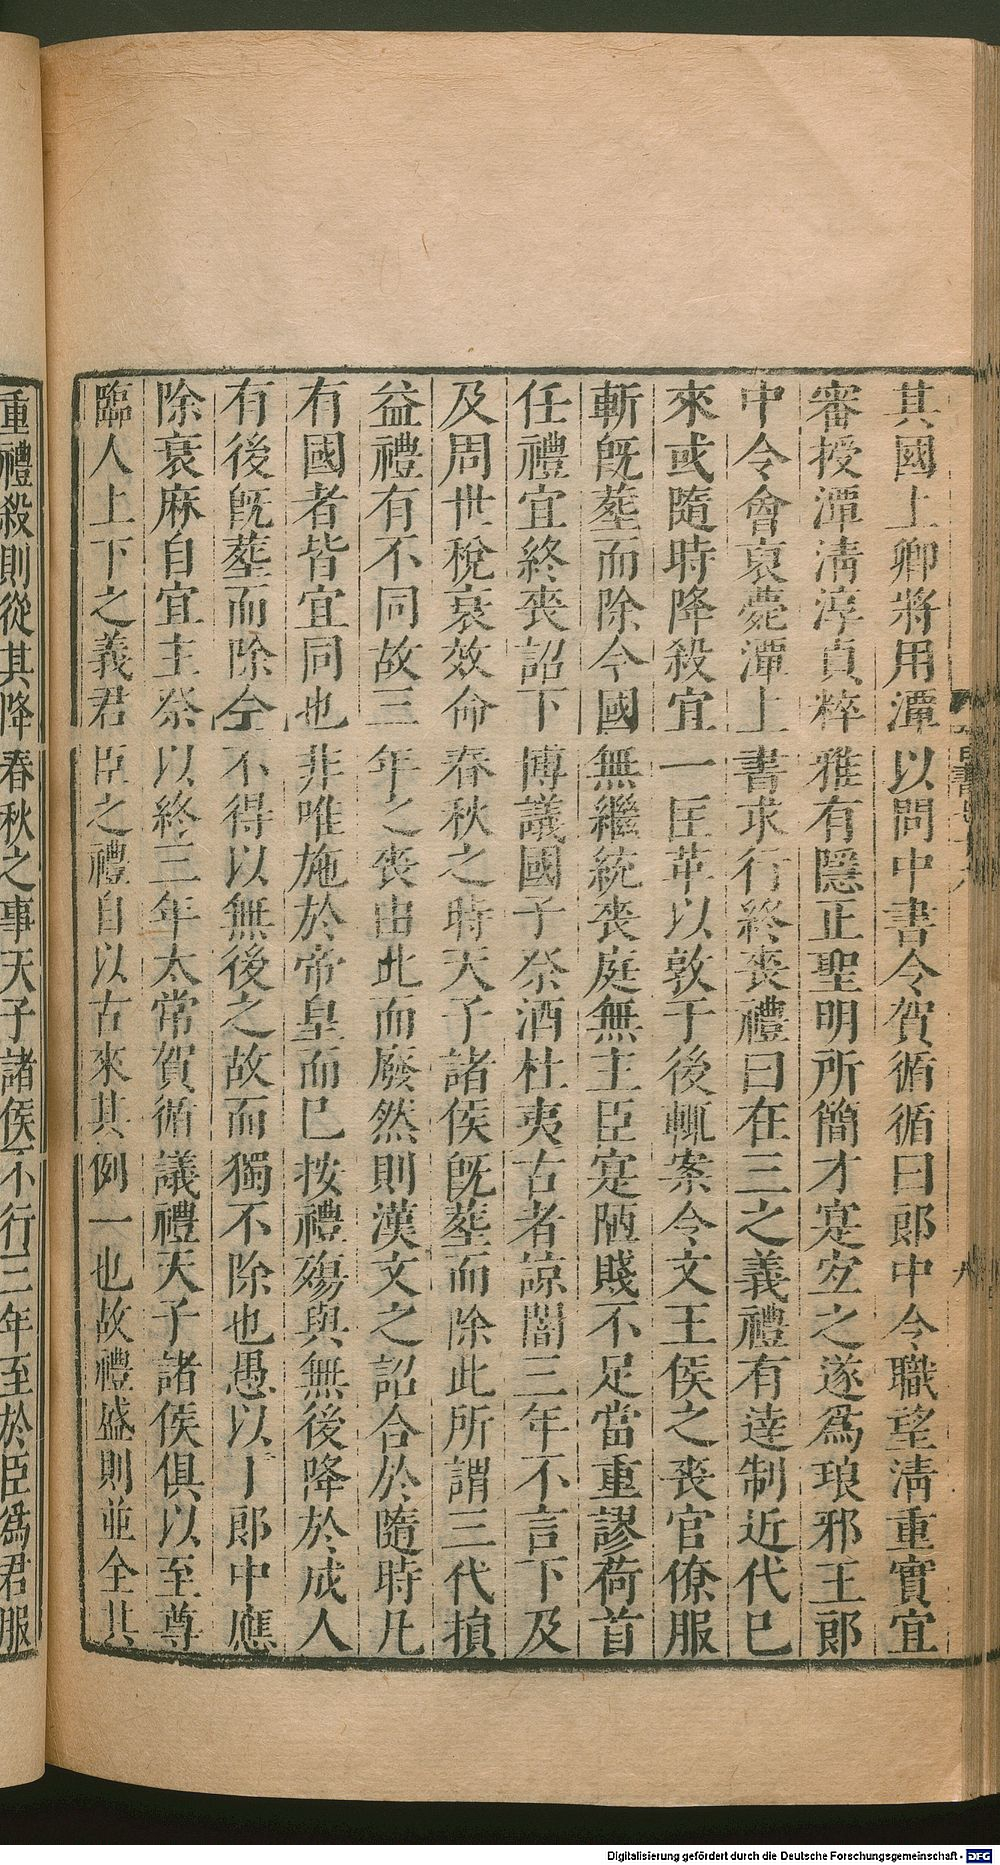 其國上卿將用潭以問中書令賀循循曰郎中令職望清重實宜
審授潭清淳貞粹雅有隱正聖明所簡才寔宜之遂爲琅邪王郎
中令會哀薨潭上書求行終喪禮曰在三之義禮有達制近代已
來或隨時降殺宜一匡革以敦于後輒案令文王侯之喪官僚服
斬旣葬而除今國無繼統喪庭無主臣寔陋賤不足當重謬荷首
任禮宜終喪詔下博議國子祭酒杜夷古者諒闇三年不言下及
及周世稅衰效命春秋之時天子諸侯旣葬而除此所謂三代損
益禮有不同故三年之喪由此而廢然則漢文之詔合於隨時凡
有國者皆宜同也非唯施於帝皇而已按禮殤與無後降於成人
有後旣葬而除今不得以無後之故而獨不除也愚以丁郎中應
除衰麻自宜主祭以終三年太常賀循議禮天子諸侯俱以至尊
臨人上下之義君臣之禮自以古來其例一也故禮盛則並全其
重禮殺則從其降春秋之事天子諸侯不行三年至於臣爲君服
Digitalisierung gefördert durch die Deutsche Forschungsgemeinschaft - DFG